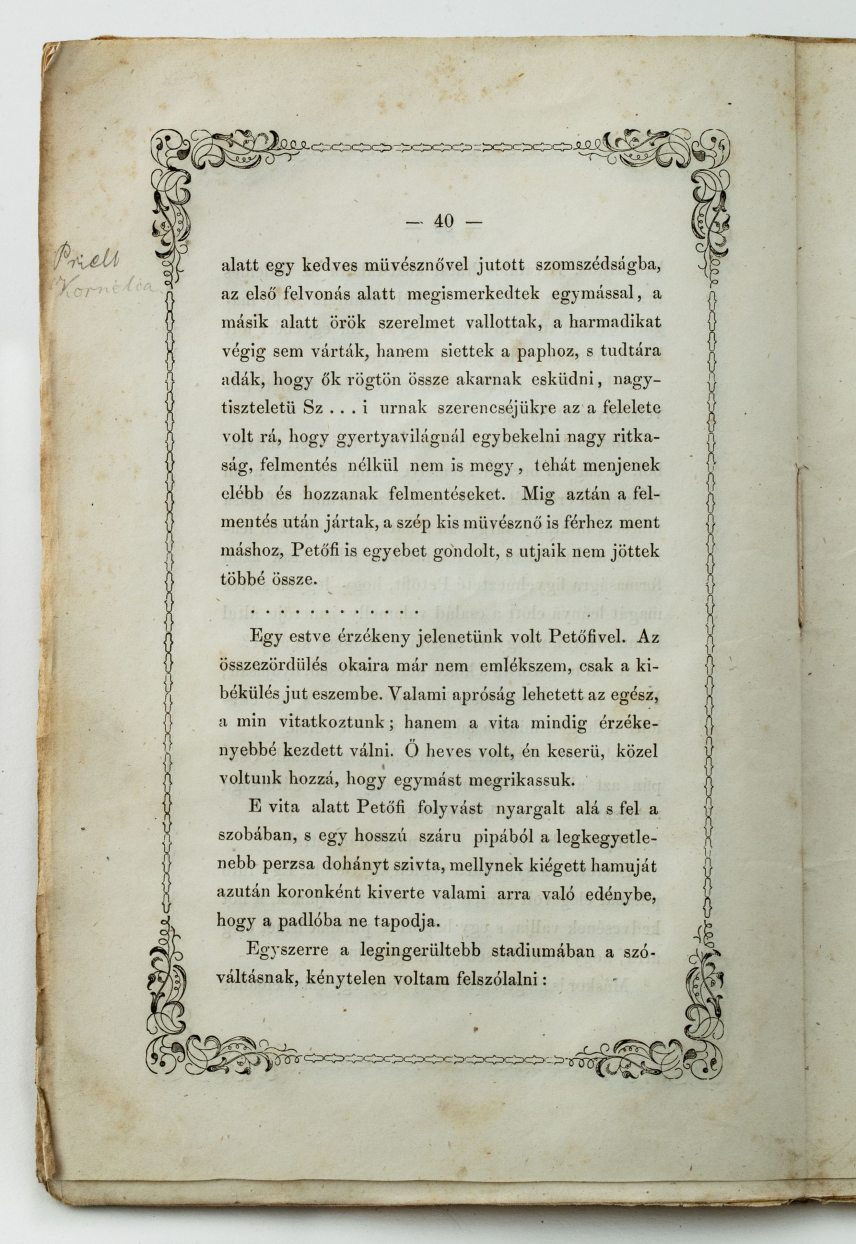 — 40 —
Prielt
Kornélia
alatt egy kedves müvésznővel jutott szomszédságba,
az első felvonás alatt megismerkedtek egymással, a
másik alatt örök szerelmet vallottak, a harmadikat
végig sem várták, hanem siettek a paphoz, s tudtára
adák, hogy ők rögtön össze akarnak esküdni, nagy-
tiszteletü Sz . . . i urnak szerencséjükre az a felelete
volt rá, hogy gyertyavilágnál egybekelni nagy ritka-
ság, felmentés nélkül nem is megy, tehát menjenek
elébb és hozzanak felmentéseket. Mig aztán a fel-
mentés után jártak, a szép kis müvésznő is férhez ment
máshoz, Petőfi is egyebet gondolt, s utjaik nem jöttek
többé össze.
. . . . . . . . . . . .
Egy estve érzékeny jelenetünk volt Petőfivel. Az
összezördülés okaira már nem emlékszem, csak a ki-
békülés jut eszembe. Valami apróság lehetett az egész,
a min vitatkoztunk; hanem a vita mindig érzéke-
nyebbé kezdett válni. Ő heves volt, én keserü, közel
voltunk hozzá, hogy egymást megrikassuk.
E vita alatt Petőfi folyvást nyargalt alá s fel a
szobában, s egy hosszú száru pipából a legkegyetle-
nebb perzsa dohányt szivta, mellynek kiégett hamuját
azután koronként kiverte valami arra való edénybe,
hogy a padlóba ne tapodja.
Egyszerre a legingerültebb stadiumában a szó-
váltásnak, kénytelen voltam felszólalni: